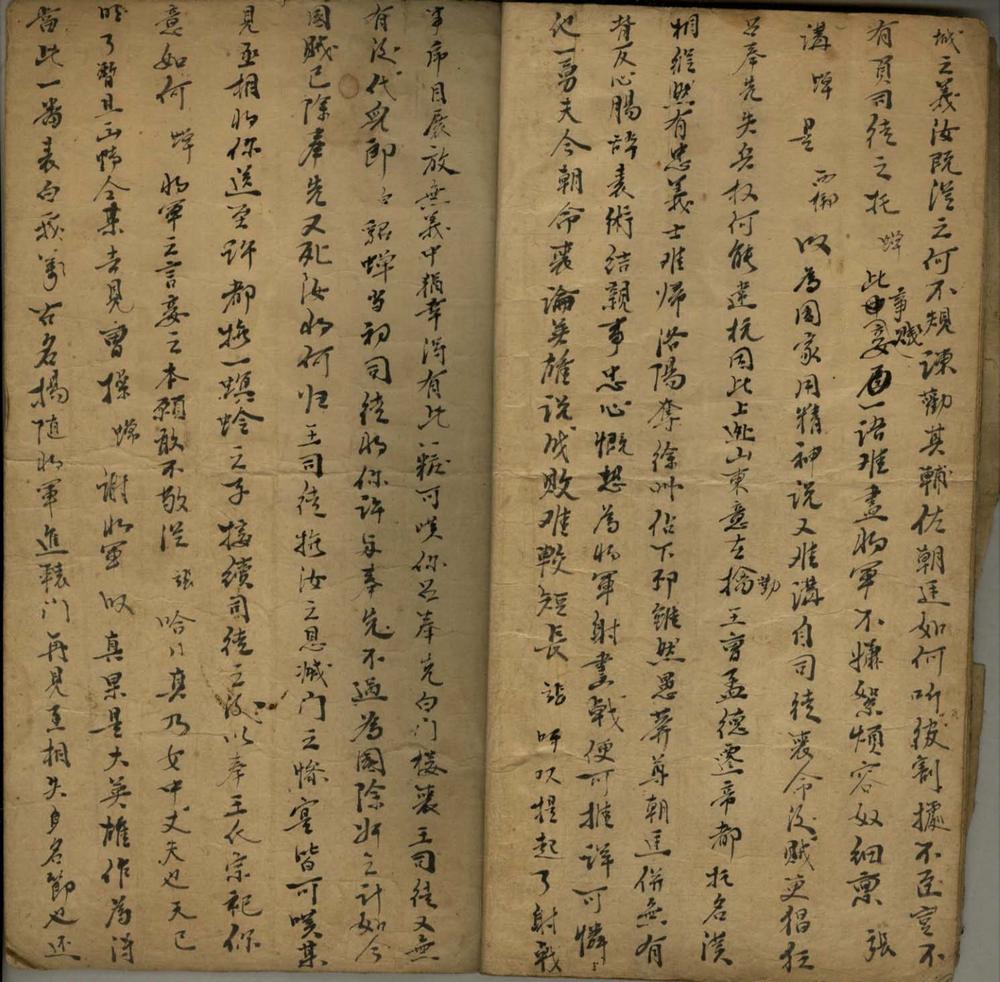 城之義汝既從之何不規諫勸其輔佐朝廷如何听彼割據不臣豈不
有負司徒之托 蟬 此事賤妾一語难盡將軍不嫌絮煩容奴細禀 張
講 蟬 是 西 叹為國家用精神説又难講自司徒喪命後賊更猖狂
吕奉先失兵权何能違抗因此上逃山東意在擒王曹孟德遷帝都托名漢
相縱然有忠義士难归洛陽奪徐州佔下邳雖然愚莽尊朝廷併無有
背反心腸許袁術結親事忠心慨想為將軍射畫戟便可推詳可憐
他一勇夫今朝命喪論英雄説成敗难較短長 詣 听叹提起了射戟
事席目展放無義中稍幸得有此 可咲你吕奉先白门樓喪王司徒又無
有後代兒郎 白 貂蟬当初司徒將你許与奉先不過為國除奸之計如今
國賊已除奉先又死汝將何归王司徒撫汝之恩滅门之慘寔皆可嘆某
見丞相將你送至許都撫一螟蛉之子接續司徒之後以奉王氏宗祀你
意如何 蟬 將軍之言妾之本願敢不敬從 張 哈哈真乃女中丈夫也天已
晚了暫且 今某去見曹操 蟬 謝將軍 叹 真果是大英雄作為得
當此一番表白我萬古名揚随將軍進轅门再見丞相失身名節也还